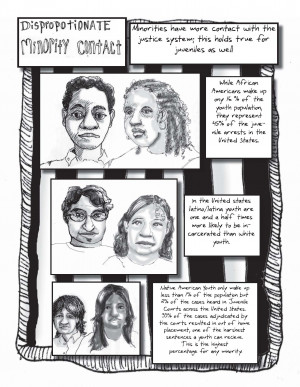 Disproportionate
Minority Contact
Minorities have more contact with the
justice system; this holds true for
juveniles as well
While African
Americans make up
only 16 % of the
youth population,
they represent
45% of the juve-
nile arrests in the
United States.
In the United states
latino/latina youth are
one and a half times
more likely to be in-
carcerated than white
youth.
Native American Youth only make up
less than 1% of the population but
2% of the cases heard in Juvenile
Courts across the United States.
33% of the cases adjudicated by
the courts resulted in out of home
placement, one of the harshest
sentences a youth can recieve.
This is the highest
percentage for any minority